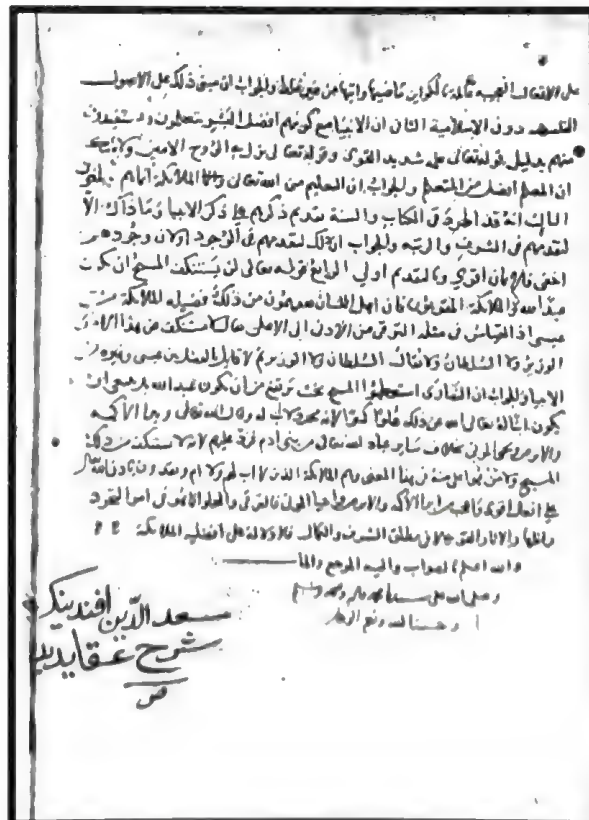 على الافعال العجيبة عالمة بالكواين ماضيها واتيها من غير غلط والجواب ان مبنى ذلك على الاصول
الفلسفية دون الاسلامية الثانى ان الانبيا مع كونهم افضل البشر يتعلمون ويستفيدون
منهم بدليل قوله تعالى علمه شديد القوى وقوله تعالى نزل به الروح الامين ولا شك
ان المعلم افضل من المتعلم والجواب ان التعليم من الله تعالى والملائكة انما هم المبلغون
الثالث انه قد اطرد فى الكتاب والسنة تقديم ذكرهم على ذكر الانبيا وما ذاك الا
لتقدمهم فى الشرف والرتبه والجواب ان ذلك لتقدمهم فى الوجود او لان وجودهم
اخفى فالايمان بهم اقوى وبالتقديم اولى الرابع قوله تعالى لن يستنكف المسيح ان يكون
عبدا لله ولا الملائكة المقربون فان اهل اللسان يفهمون من ذلك افضلية الملائكة من
عيسى اذ القياس فى مثله الترقى من الادنى الى الاعلى يقال لا يستنكف من هذا الامر
الوزير ولا السلطان ولا يقال السلطان ولا الوزير ثم لا قايل بالفصل بين عيسى وغيره من
الانبيا والجواب ان النصارى استعظموا المسيح بحيث يترفع من ان يكون عبدا لله بل ينبغى ان
يكون ابنا له تعالى الله عن ذلك علوا كبيرا لانه مجرد لا اب له وقال الله تعالى ويبرئ الاكمه
والابرص ويحيى الموتى بخلاف ساير عباد الله تعالى من بنى ادم فرد عليهم لانه لا يستنكف من ذلك
المسيح ولا من هو اعلى منه فى هذا المعنى وهم الملائكة الذين لا اب لهم ولا ام ويقدرون باذن الله
على افعال اقوى واعجب من ابرا الاكمه والابرص واحيا الموتى فالترقى والعلو انما هو فى امر التجرد
واظهار الاثار القوية لا فى مطلق الشرف والكمال فلا دلالة على افضلية الملائكة
والله اعلم بالصواب واليه المرجع والمآب
وصلى الله على سيدنا محمد واله وصحبه وسلم
وحسبنا الله ونعم الوكيل
سعد الدين افندينك
شرح عقايديدر
ص